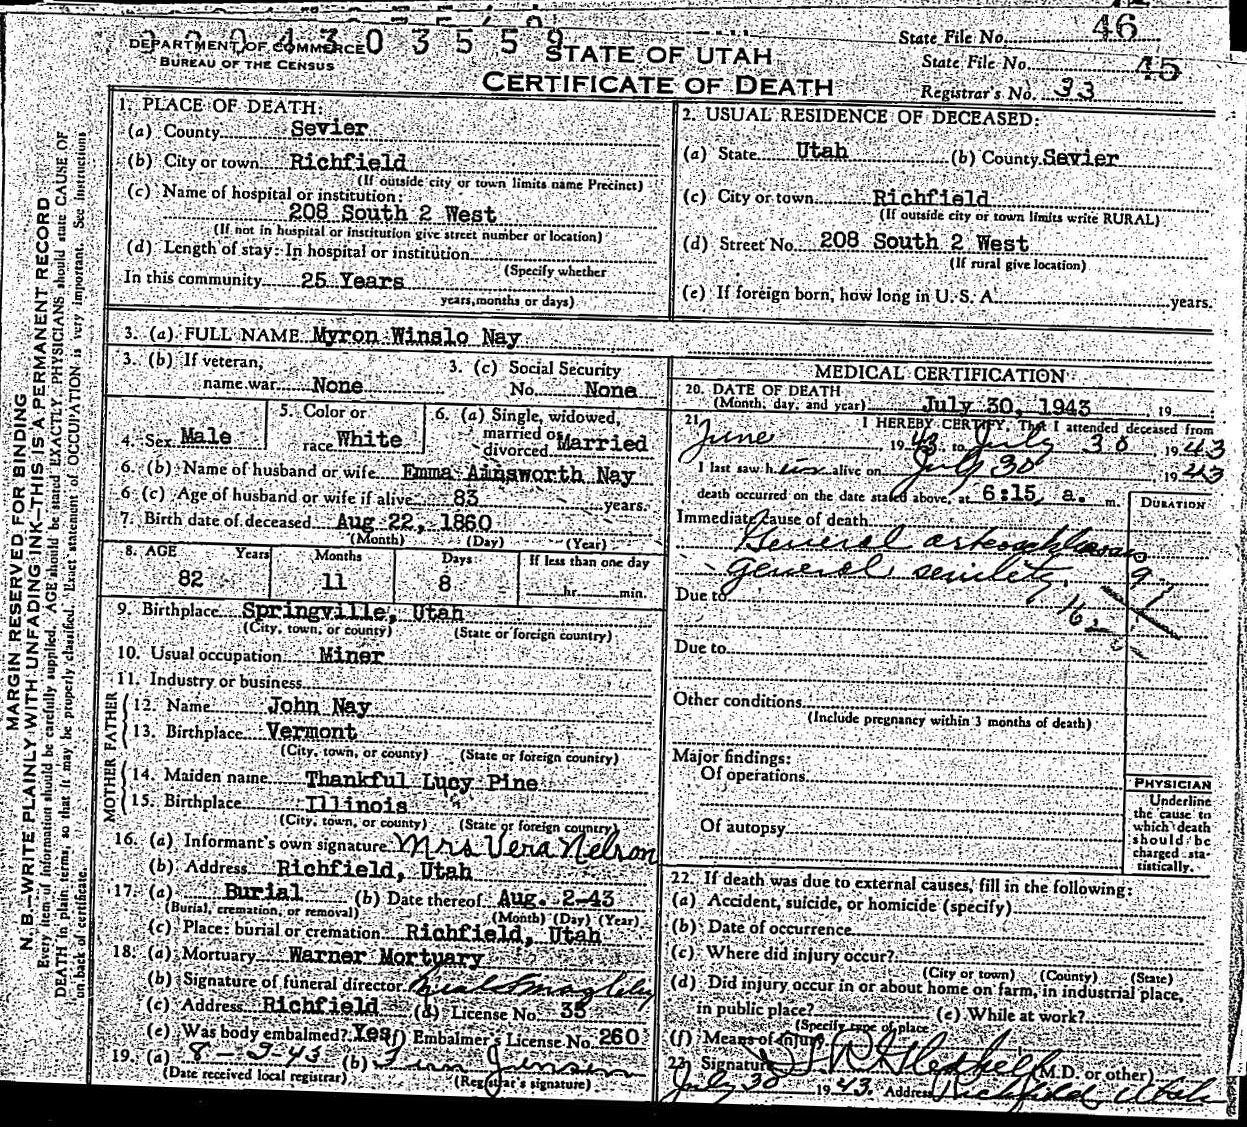 DEPARTMENT OF COMMERCE
BUREAU OF THE CENSUS
STATE OF UTAH
CERTIFICATE OF DEATH
State File No. 46
State File No. 45
Registrar's No. 33
MARGIN RESERVED FOR BINDING
N. B.—WRITE PLAINLY WITH UNFADING INK—THIS IS A PERMANENT RECORD
Every item of information should be carefully supplied. AGE should be stated EXACTLY. PHYSICIANS should state CAUSE OF
DEATH in plain terms, so that it may be properly classified. Exact statement of OCCUPATION is very important. See instructions
on back of certificate.
1. PLACE OF DEATH:
(a) County Sevier
(b) City or town Richfield
(If outside city or town limits name Precinct)
(c) Name of hospital or institution:
208 South 2 West
(If not in hospital or institution give street number or location)
(d) Length of stay: In hospital or institution
(Specify whether
In this community 25 Years
years, months or days)
2. USUAL RESIDENCE OF DECEASED:
(a) State Utah (b) County Sevier
(c) City or town Richfield
(If outside city or town limits write RURAL)
(d) Street No. 208 South 2 West
(If rural give location)
(e) If foreign born, how long in U. S. A. years.
3. (a) FULL NAME Myron Winslo Nay
3. (b) If veteran,
name war None
3. (c) Social Security
No. None
4. Sex Male
5. Color or
race White
6. (a) Single, widowed,
married or
divorced Married
6. (b) Name of husband or wife Emma Ainsworth Nay
6 (c) Age of husband or wife if alive 83 years.
7. Birth date of deceased Aug 22, 1860
(Month) (Day) (Year)
8. AGE Years Months Days If less than one day
82 11 8 hr. min.
9. Birthplace Springville, Utah
(City, town, or county) (State or foreign country)
10. Usual occupation Miner
11. Industry or business
FATHER
12. Name John Nay
13. Birthplace Vermont
(City, town, or county) (State or foreign country)
MOTHER
14. Maiden name Thankful Lucy Pine
15. Birthplace Illinois
(City, town, or county) (State or foreign country)
16. (a) Informant's own signature Mrs Vera Nelson
(b) Address Richfield, Utah
17. (a) Burial (b) Date thereof Aug. 2-43
(Burial, cremation, or removal) (Month) (Day) (Year)
(c) Place: burial or cremation Richfield, Utah
18. (a) Mortuary Warner Mortuary
(b) Signature of funeral director
(c) Address Richfield (d) License No. 35
(e) Was body embalmed? Yes (f) Embalmer's License No. 260
19. (a) 8-2-43 (b) Jensen
(Date received local registrar) (Registrar's signature)
MEDICAL CERTIFICATION
20. DATE OF DEATH
(Month, day, and year) July 30, 1943 19
21. I HEREBY CERTIFY, That I attended deceased from
June 1943 to July 30, 1943
I last saw him alive on July 30 1943
death occurred on the date stated above, at 6:15 a. m.
DURATION
Immediate cause of death
General arteriosclerosis
general senility
97
Due to
162
Due to
Other conditions
(Include pregnancy within 3 months of death)
Major findings:
Of operations
Of autopsy
PHYSICIAN
Underline
the cause to
which death
should be
charged sta-
tistically.
22. If death was due to external causes, fill in the following:
(a) Accident, suicide, or homicide (specify)
(b) Date of occurrence
(c) Where did injury occur?
(City or town) (County) (State)
(d) Did injury occur in or about home on farm, in industrial place,
in public place? (e) While at work?
(Specify type of place
(f) Means of injury
23. Signature (M.D. or other)
July 30 1943. Address Richfield Utah